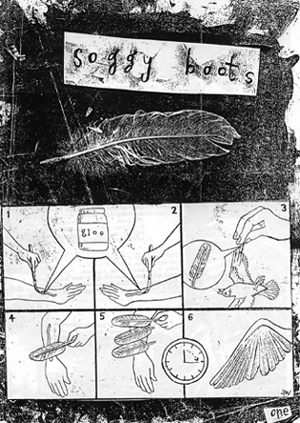 soggy boots
1
gloo
2
3
4
5
6
one